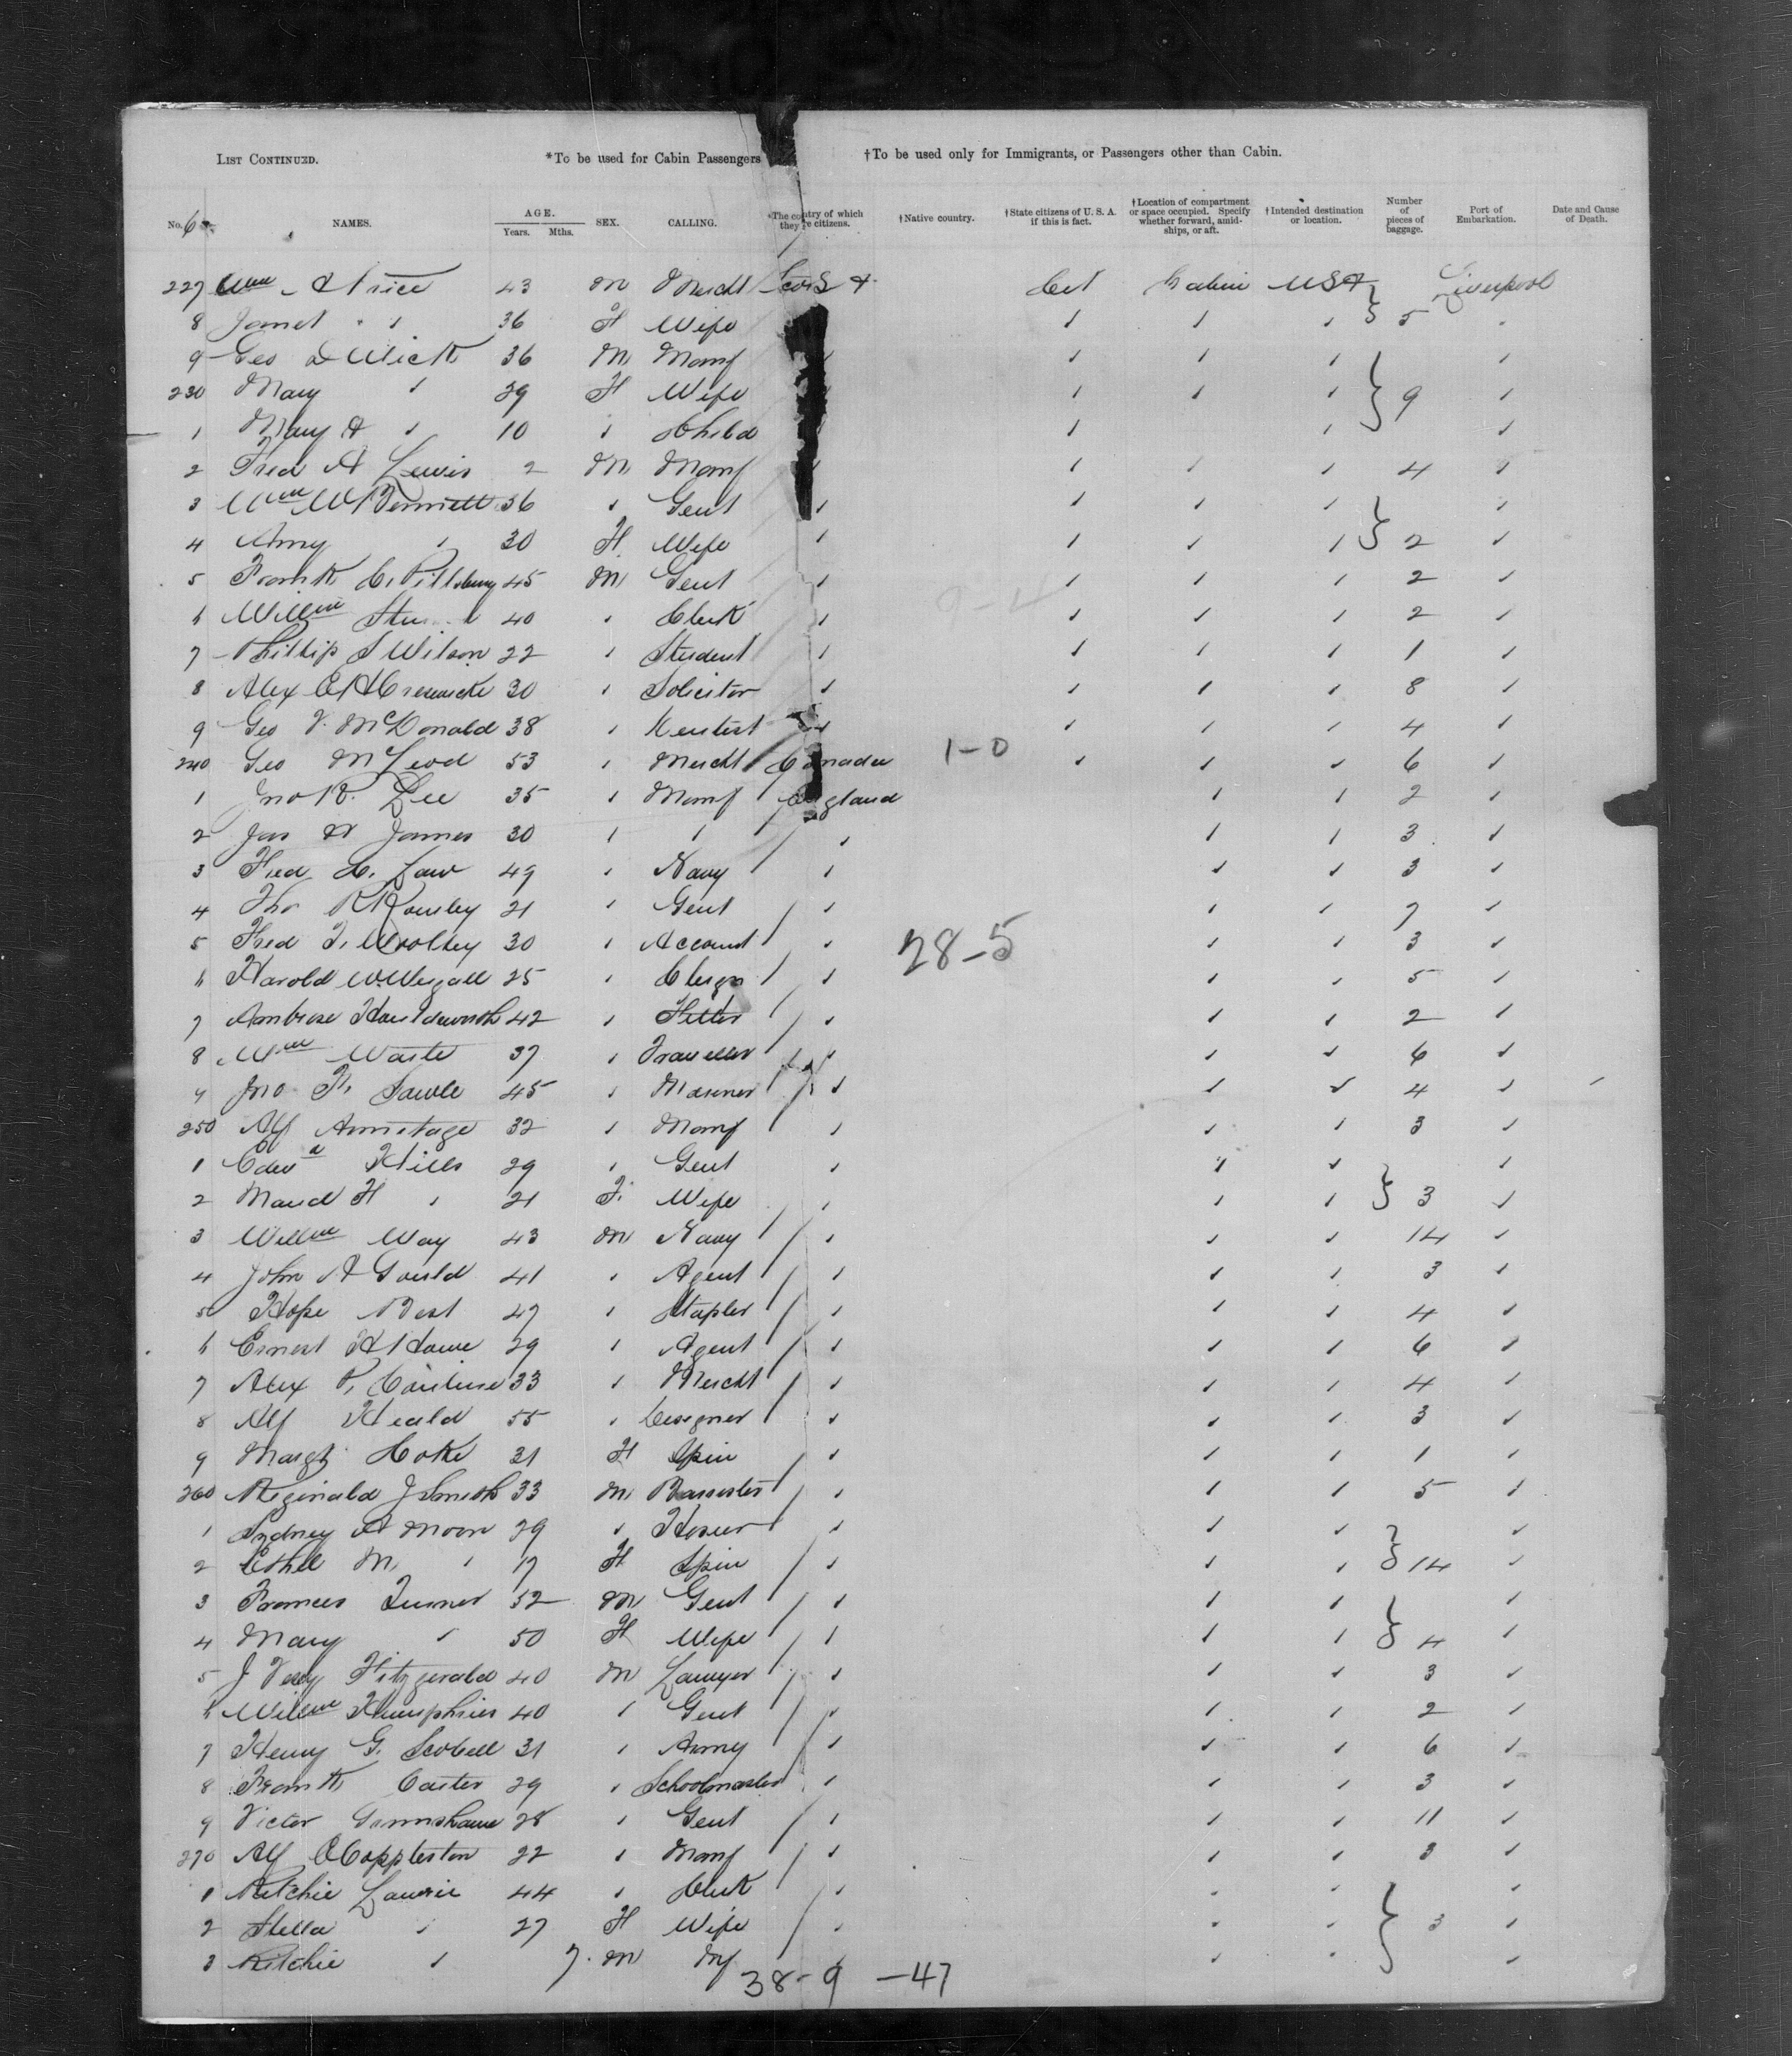 LIST CONTINUED. *To be used for Cabin Passengers †To be used only for Immigrants, or Passengers other than Cabin.
No. 6 NAMES. AGE. Years. Mths. SEX. CALLING. *The country of which they're citizens. †Native country. †State citizens of U. S. A. if this is fact. †Location of compartment or space occupied. Specify whether forward, amidships, or aft. †Intended destination or location. Number of pieces of baggage. Port of Embarkation. Date and Cause of Death.
227 Wm 43 M Mercht Cit Cabin USA Liverpool
8 Janet " 36 F Wife " " " 5 "
9 Geo D Wick 36 M Manf " " " "
230 Mary " 29 F Wife " " " 9 "
1 Mary A " 10 " Child " " "
2 Fred A Lewis 2 M Manf " " " 4 "
3 Wm W Bennett 36 " Gent " " " " "
4 Amy " 30 F Wife " " " " 2 "
5 Frank C. Pillsbury 45 M Gent " " " " 2 "
6 Willm 40 " Clerk " " " " 2 "
7 Phillip S Wilson 22 " Student " " " " 1 "
8 Alex 30 " Solicitor " " " " 8 "
9 Geo V. McDonald 38 " Dentist " " " " 4 "
240 Geo McLeod 53 " Mercht Canada 1-0 " " " 6 "
1 Jno R. Lee 35 " Manf England " " 2 "
2 Jas A James 30 " " " " " 3 "
3 Fred C. Law 49 " Navy " " " 3 "
4 Tho R Rowsley 21 " Gent " " " 7 "
5 Fred T. Woolley 30 " Account " 28-5 " " 3 "
6 Harold W. Weigall 25 " Clergn " " " 5 "
7 Ambrose Houldsworth 42 " Fitter " " " 2 "
8 Wm Waite 37 " Traveller " " " 6 "
9 Jno F. Sawle 45 " Mariner " " " 4 "
250 Alf Armitage 32 " Manf " " " 3 "
1 Edwd Hills 29 " Gent " " " "
2 Maud H " 21 F. Wife " " " 3 "
3 Willm Way 43 M Navy " " " 14 "
4 John A Gould 41 " Agent " " " 3 "
5 Hope Best 47 " Stapler " " " 4 "
6 Ernest H Howe 29 " Agent " " " 6 "
7 Alex P. 33 " Mercht " " " 4 "
8 Alf Heald 55 " Designer " " " 3 "
9 Margt Hoke 31 F Spin " " " 1 "
260 Reginald J Smith 33 M Barrister " " " 5 "
1 Sydney A Moon 29 " Hosier " " " "
2 Ethel M " 17 F Spin " " " 14 "
3 Frances Turner 52 M Gent " " " "
4 Mary " 50 F Wife " " " 4 "
5 J Vesey Fitzgerald 40 M Lawyer " " " 3 "
6 Willm Humphries 40 " Gent " " " 2 "
7 Henry G. Scobell 31 " Army " " " 6 "
8 Frank Carter 29 " Schoolmaster " " " 3 "
9 Victor Grimshawe 28 " Gent " " " 11 "
270 Alf C Coppleston 22 " Manf " " " 3 "
1 Ritchie Lawrie 44 " Clerk " " " "
2 Stella " 27 F Wife " " " 3 "
3 Ritchie " 7. M Inf " " "
38-9 -47